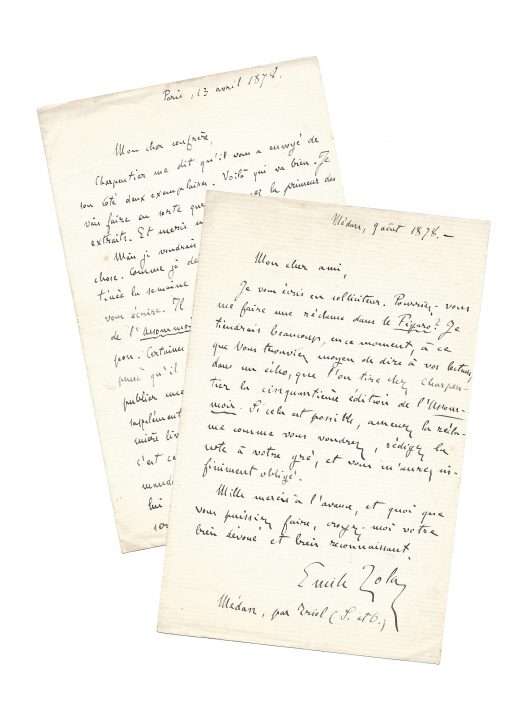 Paris, 13 avril 1878.
Mon cher confrère,
Charpentier me dit qu'il vous a envoyé de
son côté deux exemplaires. Voilà qui va bien. Je
vais faire en sorte que la primeur des
extraits. Et merci
Mais je voudrais
chose. Comme je
la semaine
vous écrire. Il
de l'Assommoir
Certaines
qu'il
publier une
supplément
c'est ce
lui
Médan, 9 août 1878. —
Mon cher ami,
Je vous écris en solliciteur. Pourriez-vous
me faire une réclame dans le Figaro? Je
tiendrais beaucoup, en ce moment, à ce
que vous trouviez moyen de dire à vos lecteurs,
dans un écho, que l'on tire chez Charpen-
tier la cinquantième édition de l'Assom-
moir. Si cela est possible, amenez la récla-
me comme vous voudrez, rédigez la
note à votre gré, et vous m'aurez in-
finiment obligé.
Mille mercis à l'avance, et quoi que
vous puissiez faire, croyez-moi votre
bien dévoué et bien reconnaissant.
Emile Zola
Médan, par Triel (S. et O.)